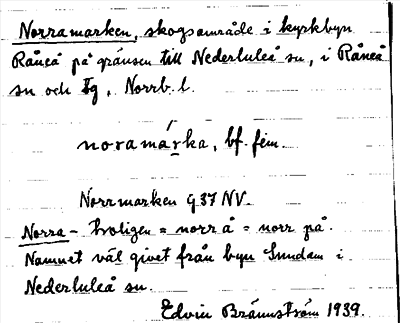 Norramarken, skogsområde i kyrkbyn
Råneå på gränsen till Nederluleå sn, i Råneå
sn och tg, Norrb. l.
noramárka, bf. fem.
Norrmarken G 37 NV.
Norra- troligen = norr å = norr på.
Namnet väl givet från byn Sundom i
Nederluleå sn.
Edvin Brännström 1939.